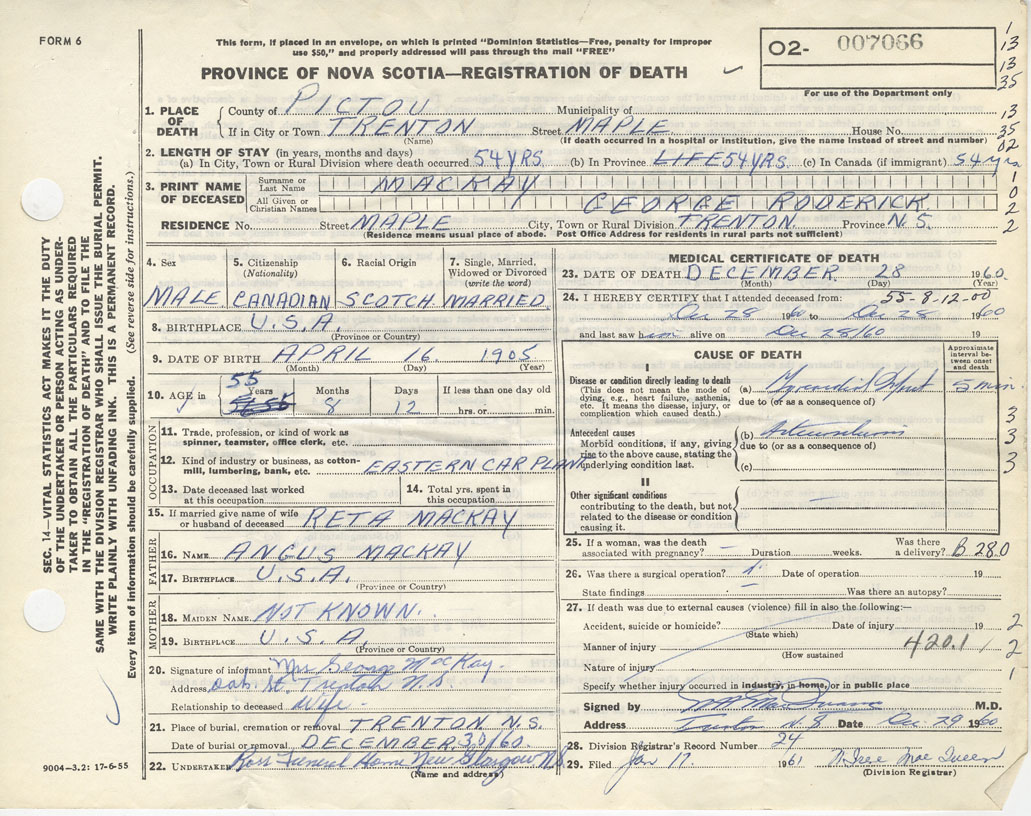 FORM 6
This form, if placed in an envelope, on which is printed "Dominion Statistics—Free, penalty for improper
use $50," and properly addressed will pass through the mail "FREE"
PROVINCE OF NOVA SCOTIA—REGISTRATION OF DEATH
O2- 007066
For use of the Department only
1
13
13
35
13
35
02
1
0
2
2
1. PLACE OF DEATH
County of PICTOU Municipality of
If in City or Town TRENTON Street MAPLE House No.
(Name) (If death occurred in a hospital or institution, give the name instead of street and number)
2. LENGTH OF STAY (in years, months and days)
(a) In City, Town or Rural Division where death occurred 54 YRS. (b) In Province LIFE 54 YRS. (c) In Canada (if immigrant) 54 yrs
3. PRINT NAME OF DECEASED
Surname or Last Name MACKAY
All Given or Christian Names GEORGE RODERICK
RESIDENCE No. Street MAPLE City, Town or Rural Division TRENTON. Province N.S.
(Residence means usual place of abode. Post Office Address for residents in rural parts not sufficient)
SEC. 14—VITAL STATISTICS ACT MAKES IT THE DUTY
OF THE UNDERTAKER OR PERSON ACTING AS UNDER-
TAKER TO OBTAIN ALL THE PARTICULARS REQUIRED
IN THE "REGISTRATION OF DEATH" AND TO FILE THE
SAME WITH THE DIVISION REGISTRAR WHO SHALL ISSUE THE BURIAL PERMIT.
WRITE PLAINLY WITH UNFADING INK. THIS IS A PERMANENT RECORD.
Every item of information should be carefully supplied. (See reverse side for instructions.)
4. Sex 5. Citizenship (Nationality) 6. Racial Origin 7. Single, Married, Widowed or Divorced (write the word)
MALE CANADIAN SCOTCH MARRIED
8. BIRTHPLACE U.S.A.
(Province or Country)
9. DATE OF BIRTH APRIL 16 1905
(Month) (Day) (Year)
10. AGE in 55 Years 8 Months 12 Days If less than one day old hrs. or min.
OCCUPATION
11. Trade, profession, or kind of work as
spinner, teamster, office clerk, etc.
12. Kind of industry or business, as cotton-
mill, lumbering, bank, etc. EASTERN CAR PLANT
13. Date deceased last worked at this occupation
14. Total yrs. spent in this occupation
15. If married give name of wife
or husband of deceased RETA MACKAY
FATHER
16. NAME ANGUS MACKAY
17. BIRTHPLACE U.S.A.
(Province or Country)
MOTHER
18. MAIDEN NAME NOT KNOWN.
19. BIRTHPLACE U.S.A.
(Province or Country)
20. Signature of informant Mrs George MacKay.
Address St. Trenton N.S.
Relationship to deceased Wife
21. Place of burial, cremation or removal TRENTON N.S.
Date of burial or removal DECEMBER 30/60.
22. UNDERTAKER Ross Funeral Home New Glasgow N.S.
(Name and address)
9004—3.2: 17-6-55
MEDICAL CERTIFICATE OF DEATH
23. DATE OF DEATH DECEMBER 28 1960
(Month) (Day) (Year)
55-8-12-00
24. I HEREBY CERTIFY that I attended deceased from:
Dec 28 1960 to Dec 28 1960
and last saw him alive on Dec 28/60 19
CAUSE OF DEATH
Approximate interval between onset and death
I
Disease or condition directly leading to death
(This does not mean the mode of
dying, e.g., heart failure, asthenia,
etc. It means the disease, injury, or
complication which caused death.)
(a) 5 min.
due to (or as a consequence of)
Antecedent causes
Morbid conditions, if any, giving
rise to the above cause, stating the
underlying condition last.
(b)
due to (or as a consequence of)
(c)
3
3
3
3
II
Other significant conditions
contributing to the death, but not
related to the disease or condition
causing it.
25. If a woman, was the death
associated with pregnancy? — Duration weeks. Was there a delivery? B 28.0
26. Was there a surgical operation? Date of operation 19
State findings — Was there an autopsy?
27. If death was due to external causes (violence) fill in also the following:—
Accident, suicide or homicide? Date of injury 19
(State which)
Manner of injury 420.1
(How sustained
Nature of injury
2
2
1
Specify whether injury occurred in industry, in home, or in public place
Signed by M.D.
Address Trenton N.S Date Dec 29 1960
28. Division Registrar's Record Number 24
29. Filed Jan 17 1961
(Division Registrar)